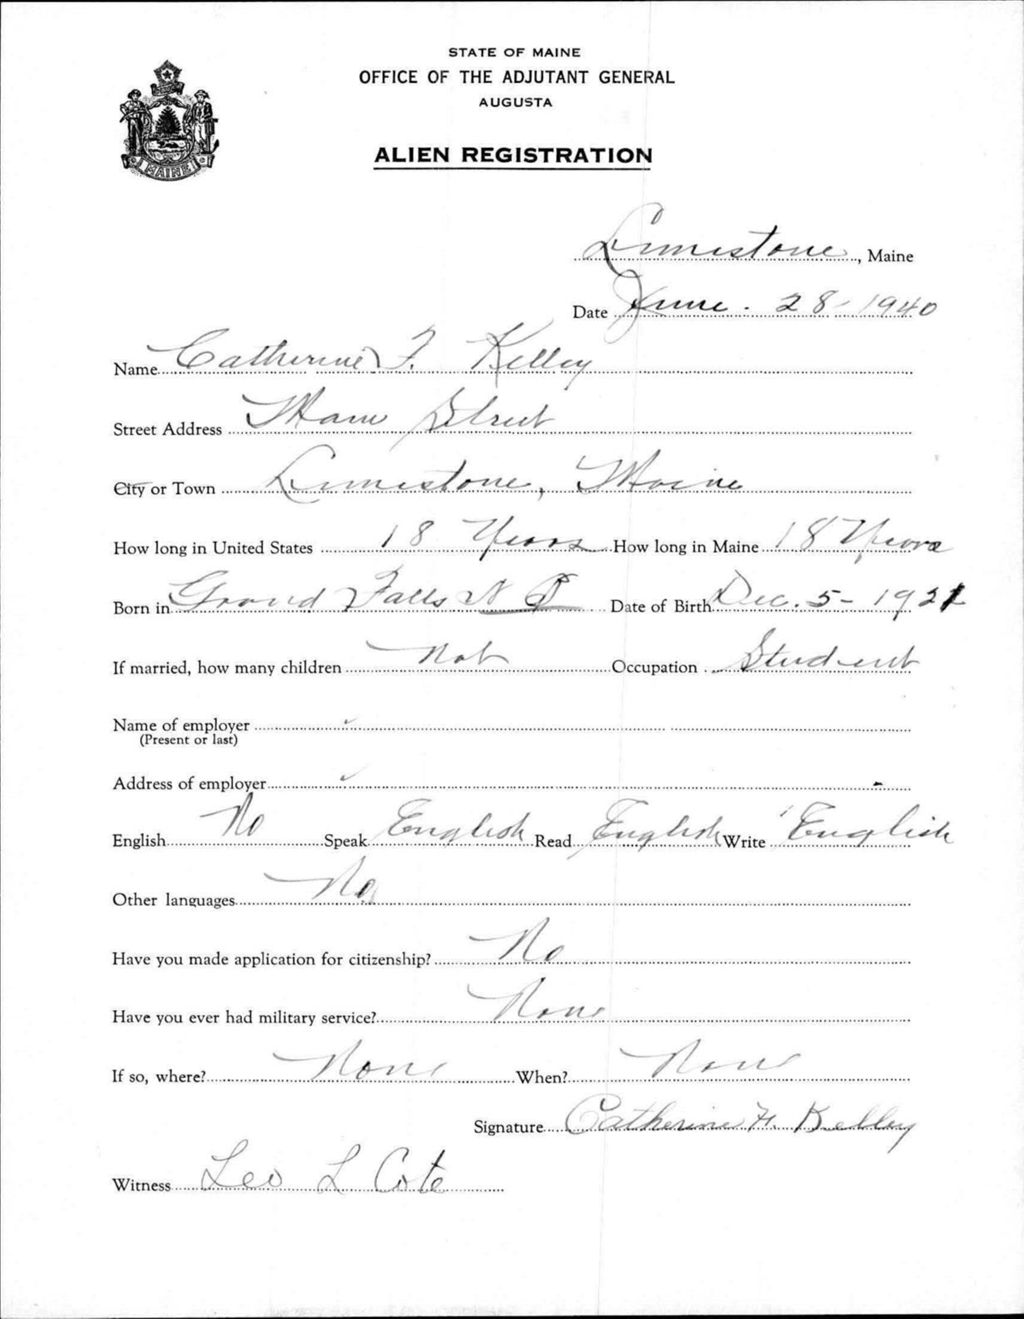 STATE OF MAINE
OFFICE OF THE ADJUTANT GENERAL
AUGUSTA
ALIEN REGISTRATION
MAINE
Limestone, Maine
Date June. 28-1940
Name Catherine F. Kelley
Street Address Main Street
City or Town Limestone, Maine
How long in United States 18 Years How long in Maine 18 Years
Born in Grand Falls N B Date of Birth Dec. 5-1921
If married, how many children Not Occupation Student
Name of employer
(Present or last)
Address of employer
English No Speak English Read English Write English
Other languages No
Have you made application for citizenship? No
Have you ever had military service? None
If so, where? None When? None
Signature Catherine F. Kelley
Witness Leo L Cote